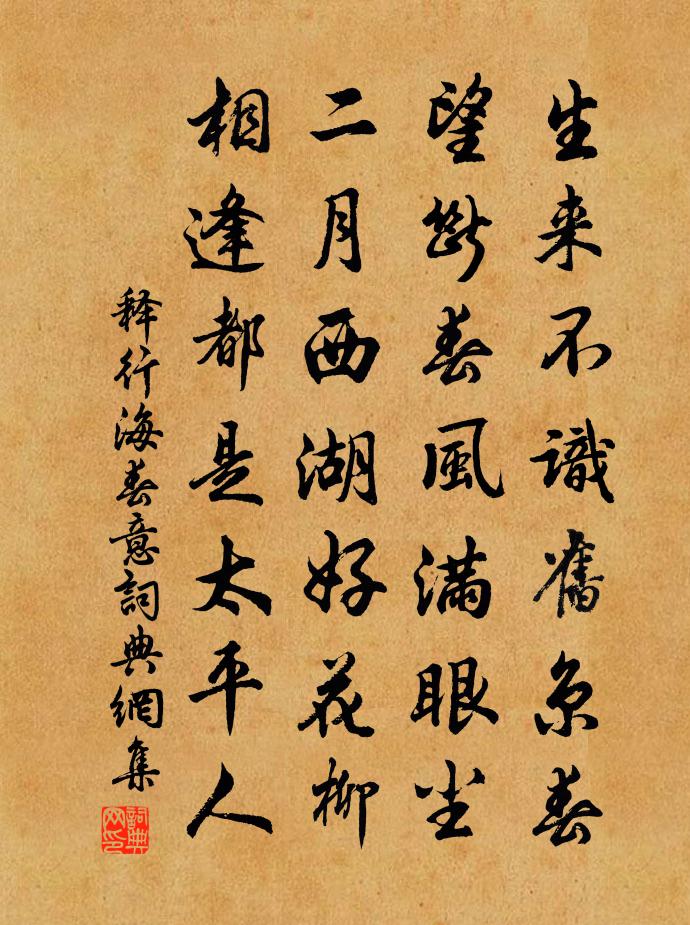 生来不識舊京春
望斷春風滿眼尘
二月西湖好花柳
相逢都是太平人
释行海春意詞典網集
詞典
网印